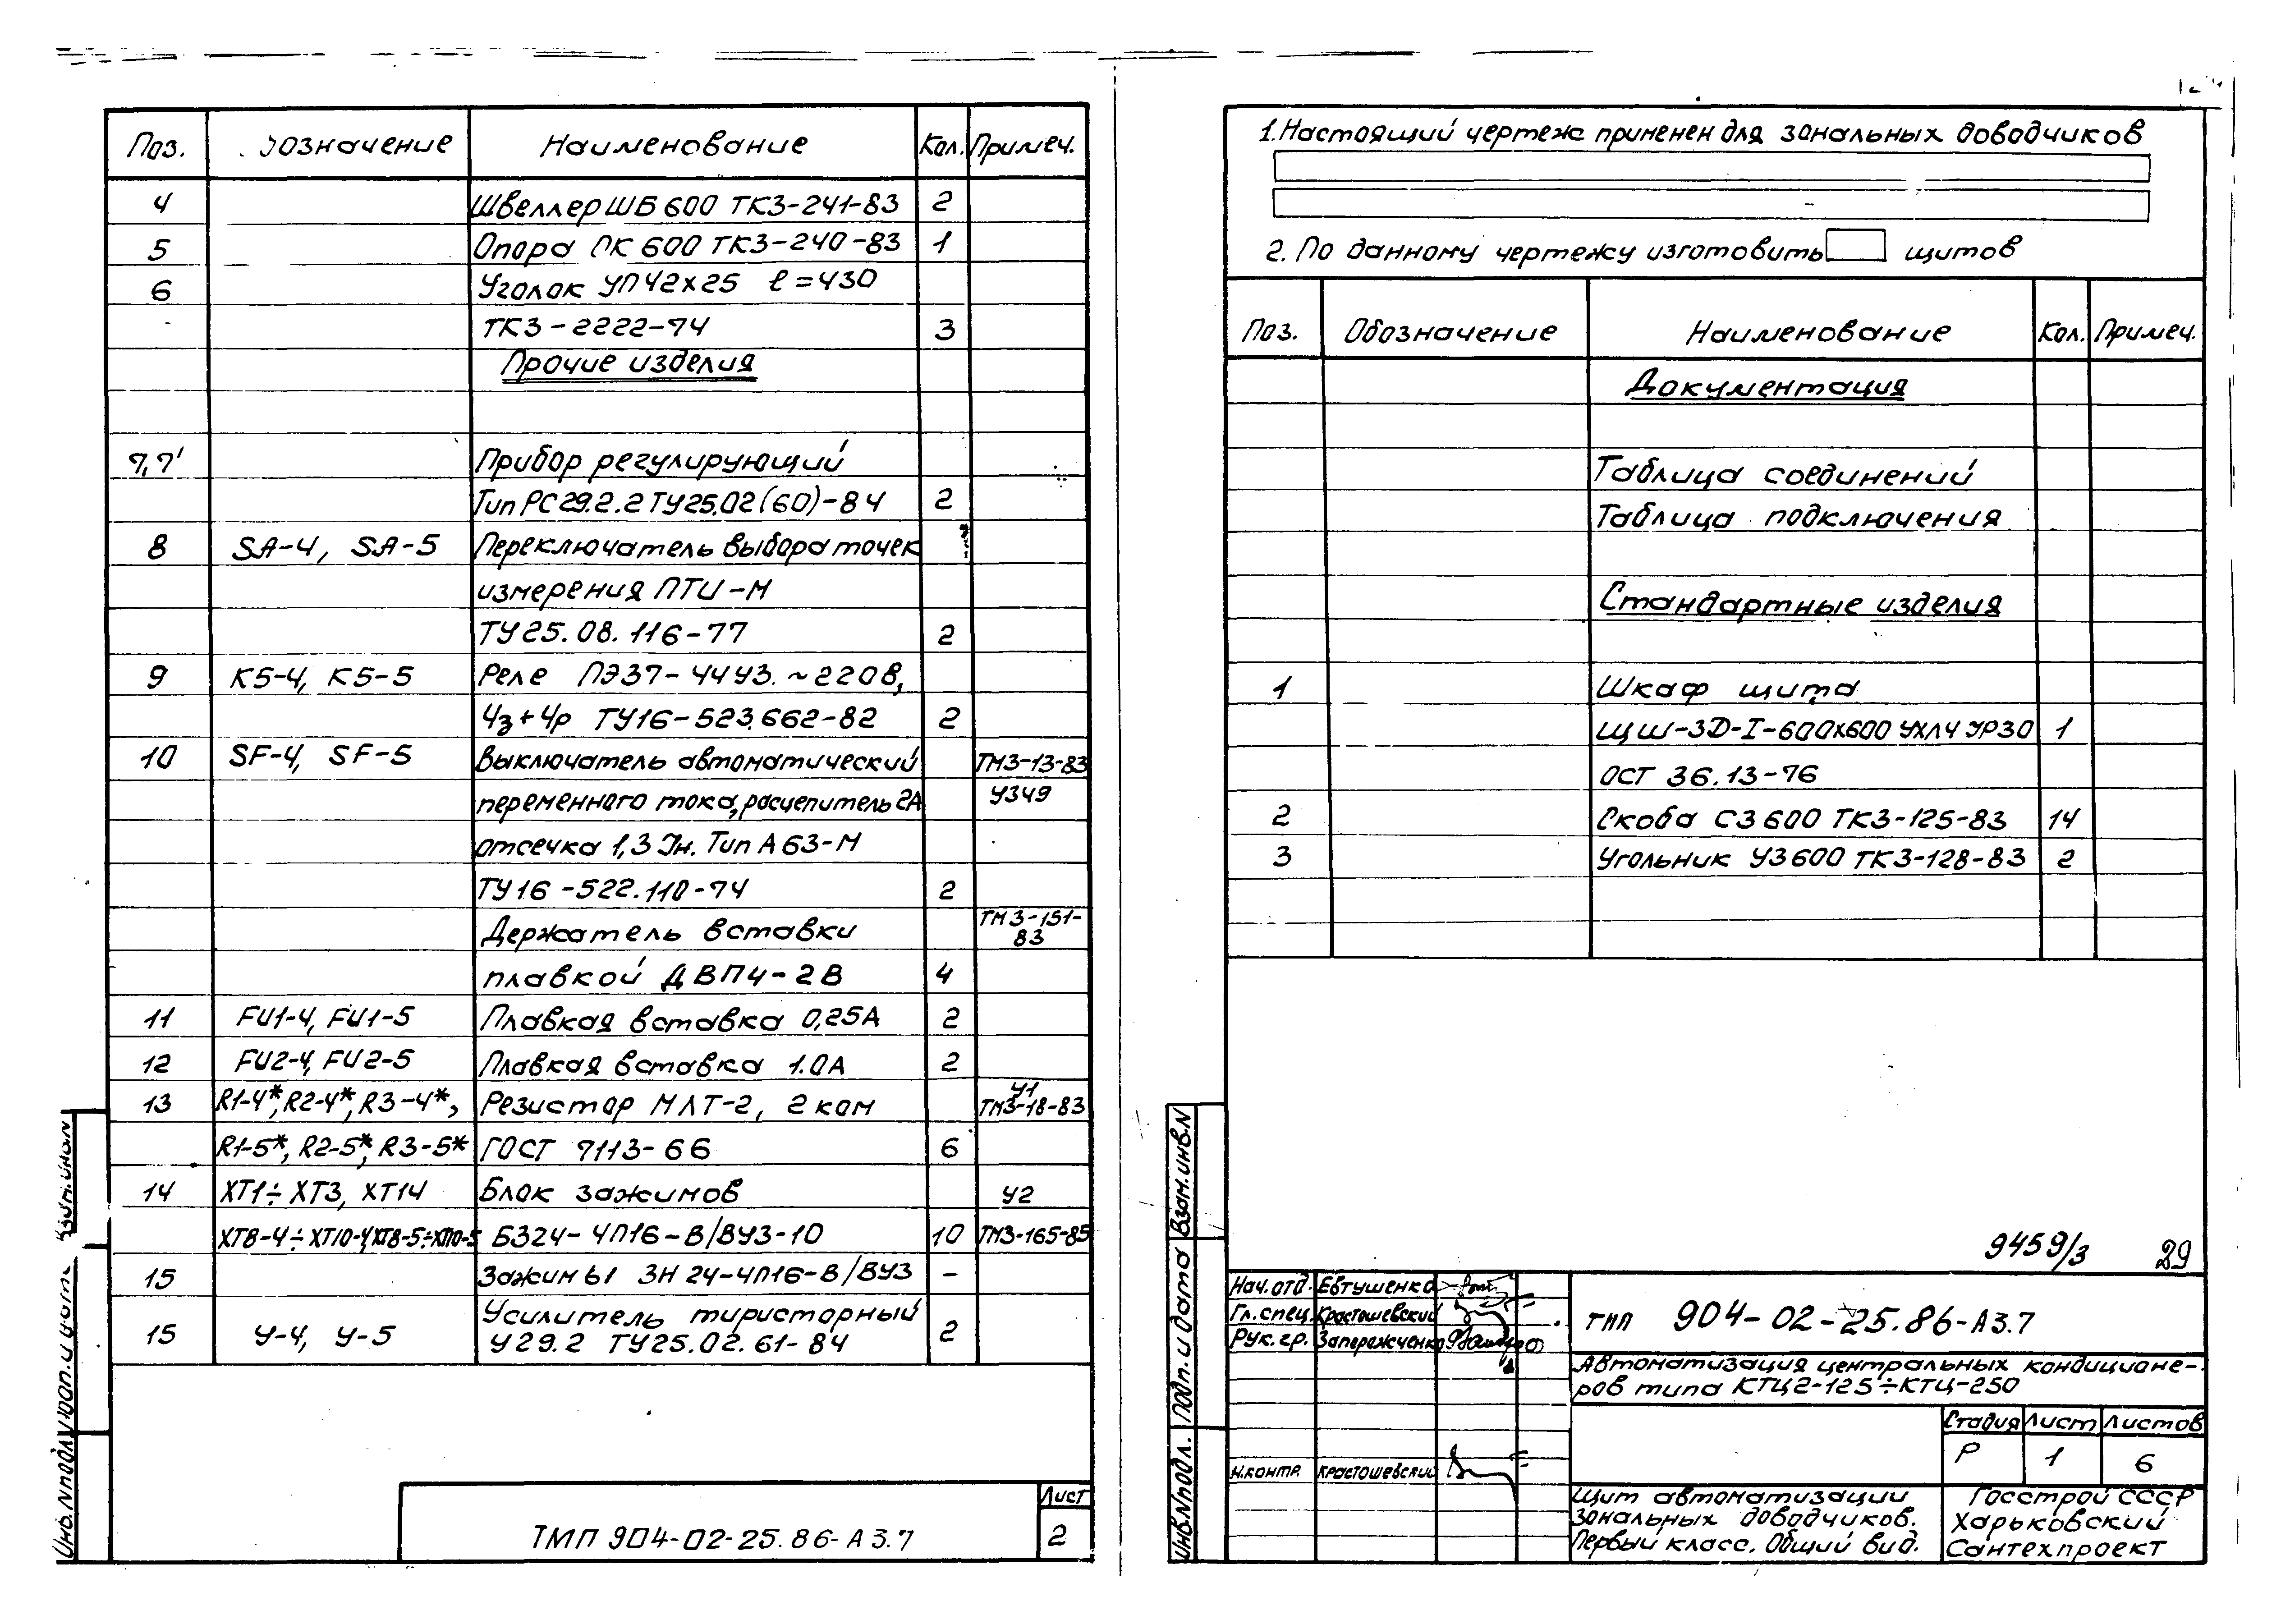 Поз. Обозначение Наименование Кол. Примеч.
4 Швеллер ШБ 600 ТК3-241-83 2
5 Опора ПК 600 ТК3-240-83 1
6 Уголок УП 42х25 ℓ=430
ТК3-2222-74 3
Прочие изделия
7,7' Прибор регулирующий
Тип РС29.2.2 ТУ25.02(60)-84 2
8 SA-4, SA-5 Переключатель выбора точек
измерения ПТИ-М
ТУ25.08.116-77 2
9 К5-4, К5-5 Реле ПЭ37-44У3. ~220В,
4з+4р ТУ16-523.662-82 2
10 SF-4, SF-5 Выключатель автоматический ТМ3-13-83
переменного тока, расцепитель 2А У349
отсечка 1,3 Iн. Тип А63-М
ТУ16-522.110-74 2
Держатель вставки ТМ3-151-
83
плавкой ДВП4-2В 4
11 FU1-4, FU1-5 Плавкая вставка 0,25А 2
12 FU2-4, FU2-5 Плавкая вставка 1.0А 2
13 R1-4*, R2-4*, R3-4*, Резистор МЛТ-2, 2 ком У1
ТМ3-18-83
R1-5*, R2-5*, R3-5* ГОСТ 7113-66 6
14 ХТ1÷ХТ3, ХТ14 Блок зажимов У2
ХТ8-4÷ХТ10-4, ХТ8-5÷ХТ10-5 БЗ24-4П16-В/ВУ3-10 10 ТМ3-165-85
15 Зажимы ЗН24-4П16-В/ВУ3 -
Усилитель тиристорный
15 У-4, У-5 У29.2 ТУ25.02.61-84 2
Взам.инв.N
Подп. и дата
Инв.Nподл.
ТМП 904-02-25.86-А3.7
Лист
2
1. Настоящий чертеж применен для зональных доводчиков
2. По данному чертежу изготовить щитов
Поз. Обозначение Наименование Кол. Примеч.
Документация
Таблица соединений
Таблица подключения
Стандартные изделия
1 Шкаф щита
ЩШ-3Д-I-600х600 УХЛ4 УР30 1
ОСТ 36.13-76
2 Скоба С3 600 ТК3-125-83 14
3 Угольник У3 600 ТК3-128-83 2
9459/3 29
Взам.инв.N
Подп. и дата
Инв.Nподл.
Нач.отд. Евтушенко
Гл.спец. Красташевский
Рук.гр. Запорожченко
Н.контр. Красташевский
ТМП 904-02-25.86-А3.7
Автоматизация центральных кондиционе-
ров типа КТЦ2-125÷КТЦ-250
Стадия Лист Листов
Р 1 6
Щит автоматизации
зональных доводчиков.
Первый класс. Общий вид.
Госстрой СССР
Харьковский
Сантехпроект